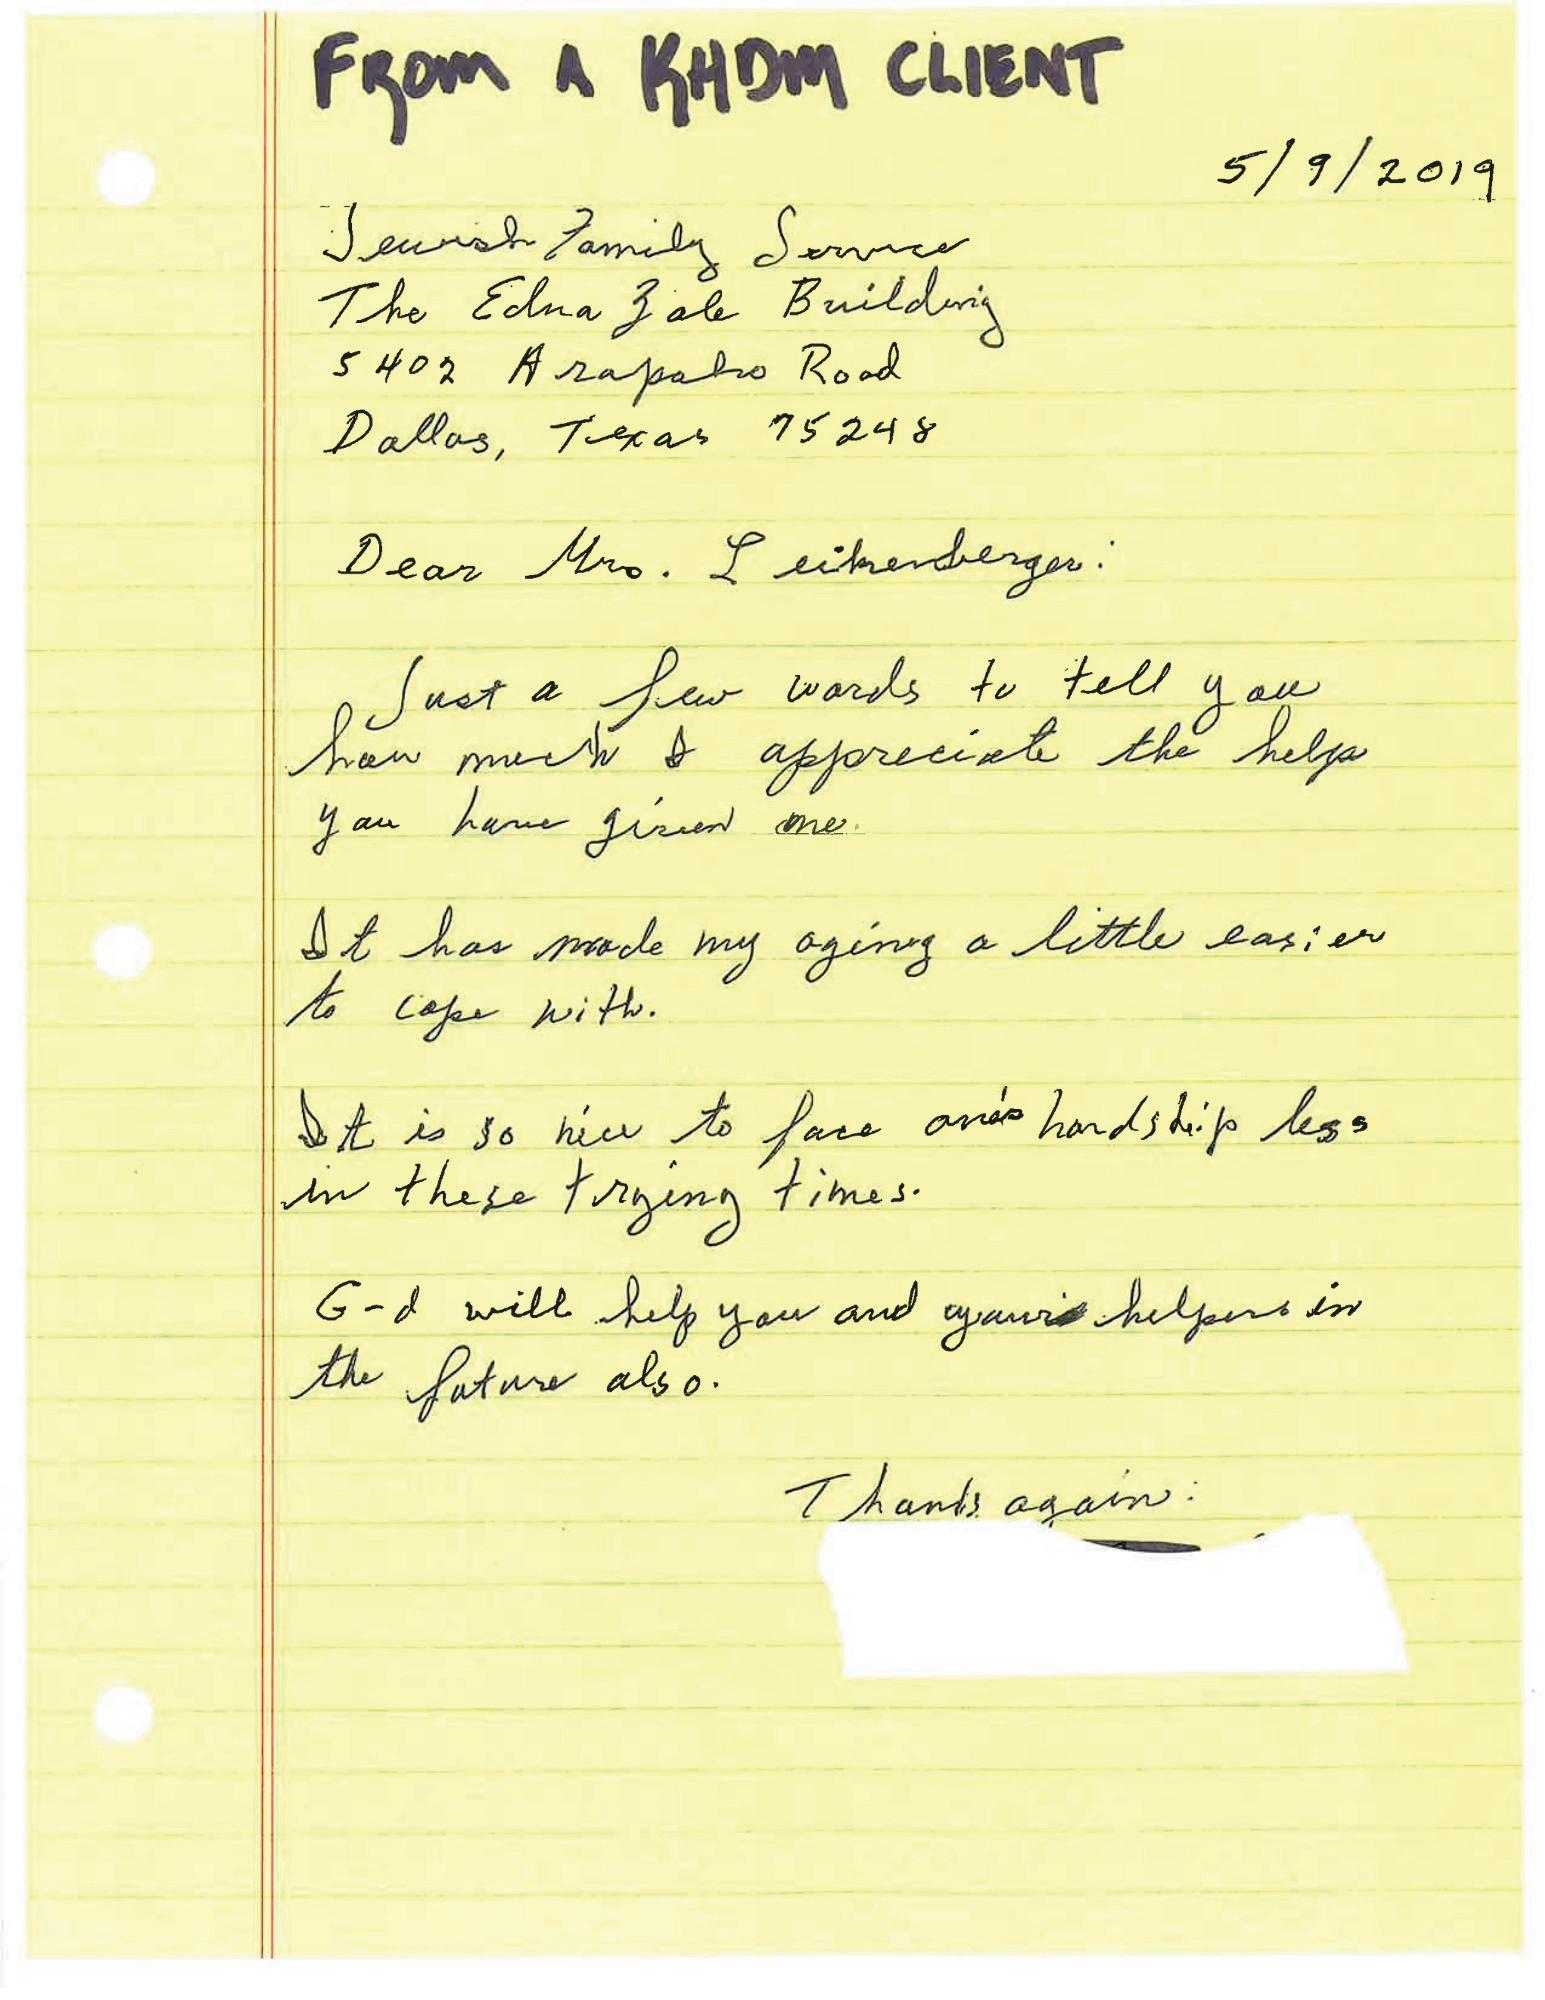 FROM A KHDM CLIENT
5/9/2019
Jewish Family Service
The Edna Zale Building
5402 Arapaho Road
Dallas, Texas 75248
Dear Mrs. Leikenberger:
Just a few words to tell you
how much I appreciate the help
you have given me.
It has made my aging a little easier
to cope with.
It is so nice to face one's hardship less
in these trying times.
G-d will help you and your helpers in
the future also.
Thanks again: